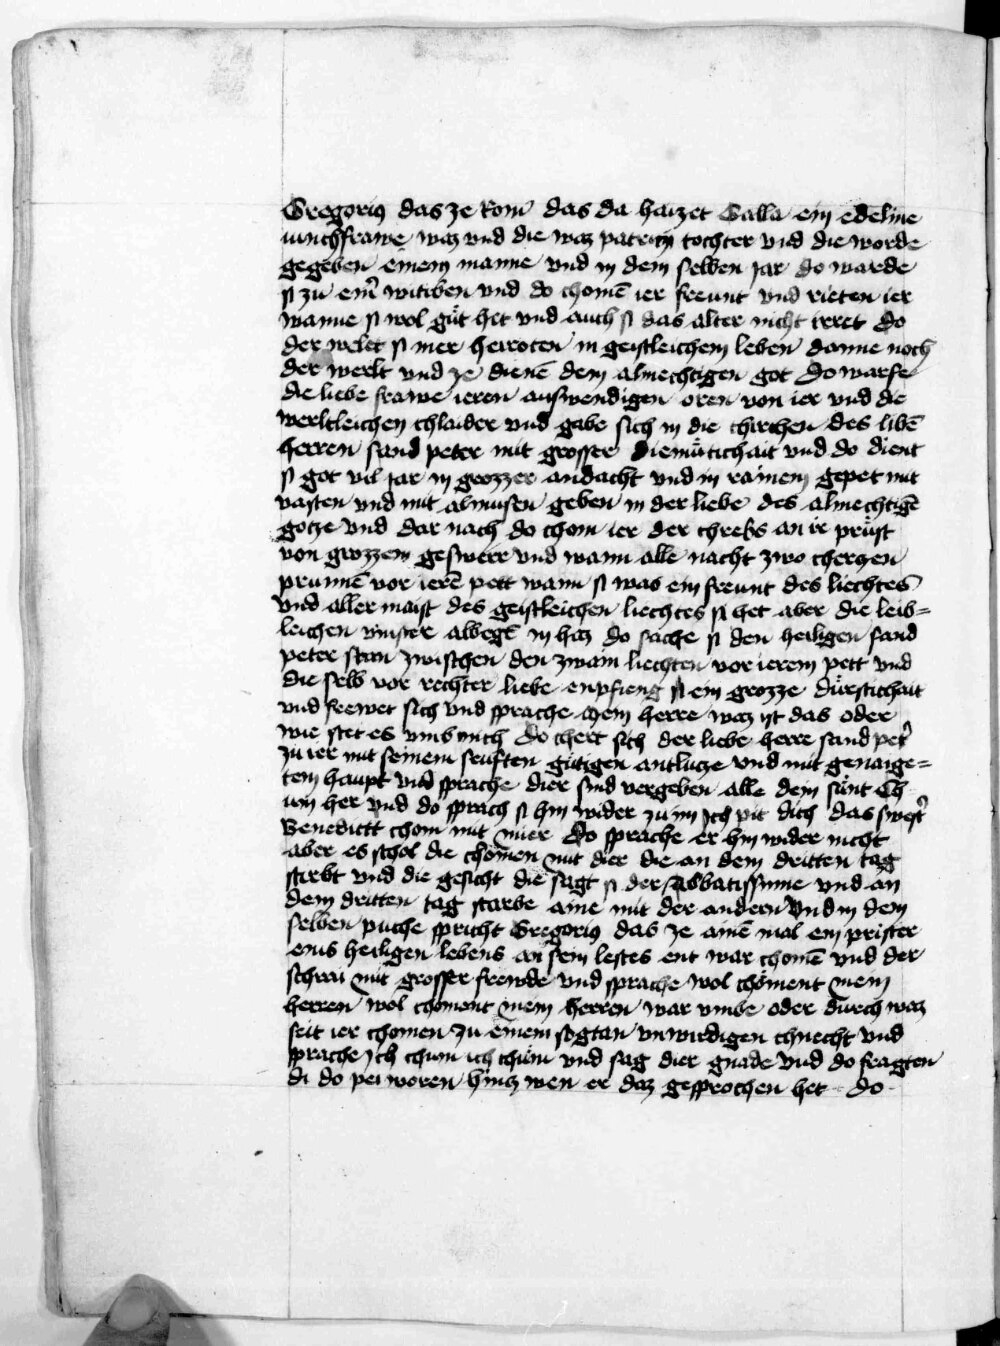 Gregorius das ze Rom das da haizet Galla ein edeline
iunchfrawe waz vnd die waz patricii tochter vnd die worde
gegeben einem manne vnd in dem selben jar do warde
si zu em̃ witiben vnd do chomē ier freunt vnd rieten ier
wanne si wol gůt het vnd auch si das alter nicht irret do
der welet si mer heiroten in geistleichem leben danne noch
der werlt vnd ze dienē dem almechtigen got Do warfe
die liebe frawe ieren auswendigen oren von ier vnd die
werltleichen chlaider vnd gabe sich in die chirchen des libē
herren sand peter mit grosser diemůtichait vnd do dient
si got vil jar in grozzer andacht vnd in rainem gepet mit
vasten vnd mit almusen geben in der liebe des almechtigē
gotze vnd dar nach do chom ier der chrebs an ir průst
von grozzem geswerr vnd wann alle nacht zwo cherzen
prunnē vor ierē pett wann si was ein freunt des liechtes
vnd aller maist des geistleichen liechtes si het aber die leib=
leichen vinster albegē in haz do sache si den heiligen sand
peter stan zwischen den zwain liechten vor ierem pett vnd
die selb vor rechter liebe enpfieng si ein grozze dürstichait
vnd frewet sich vnd sprache mein herre waz ist das oder
wie stet es vmb mich Do chert sich der liebe herre sand pet̉
zu ier mit seinem seuften gütigen antlucze vnd mit genaige=
tem haupt vnd sprache dier sind vergeben alle dein sünt Ch
um her vnd do sprach si hin wider zu im Ich pit dich das swest̉
Benedictt chom mit mier Do sprache er hin wider nicht
aber es schol die chomen mit dier die an dem dritten tag
stirbt vnd die gesicht die sagt si der abbatissinne vnd an
dem dritten tag starbe aine mit der andern Vnd in dem
selben puche spricht Gregorius das ze ainē mal ein prister
enis heiligen lebens an sein lestes ent war chomē vnd der
schrai mit grosser frewde vnd sprache wol chöment mein
herren wol chöment mein herren war vmbe oder durch waz
seit ier chomen zu einem sogtan vnwirdigen chnecht vnd
sprache Ich chum ich chüm vnd sag dier gnade vnd do fragten
di do pei woren hincz wen er daz gesprochen het Do